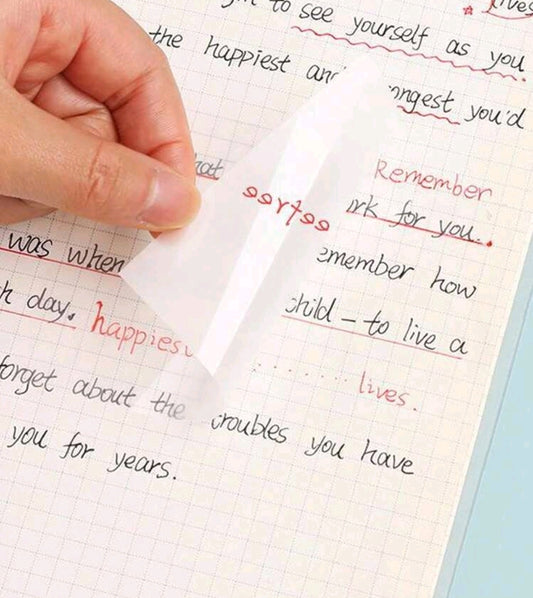 lives
to see yourself as you
the happiest and ongest you'd
hat Remember
rk for you..
was when emember how
h day. happiest child – to live a
lives.
orget about the troubles you have
you for years.